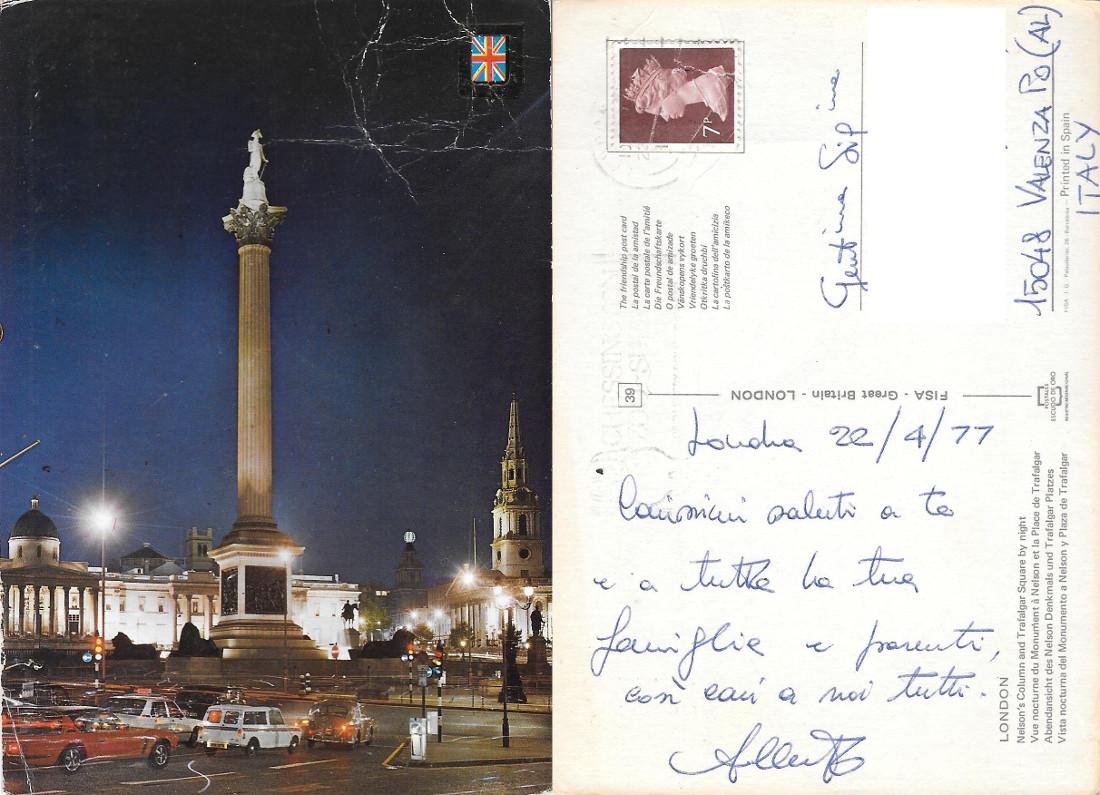 7P
Gentima Sip ina
15048 VALENZA PO (AL)
ITALY
The friendship post card
La postal de la amistad
La carte postale de l'amitié
Die Freundschaftskarte
O postal de amizade
Vänskapens vykort
Vriendelyke groeten
Otkritka druchbi
La cartolina dell'amicizia
La poŝtkarto de la amikeco
Printed in Spain
39
FISA - Great Britain - LONDON
ESCUDO DE ORO
Londra 22/4/77
Carissimi saluti a te
e a tutta la tua
famiglia e parenti,
così cari a noi tutti.
Alberto
LONDON
Nelson's Column and Trafalgar Square by night
Vue nocturne du Monument à Nelson et la Place de Trafalgar
Abendansicht des Nelson Denkmals und Trafalgar Platzes
Vista nocturna del Monumento a Nelson y Plaza de Trafalgar